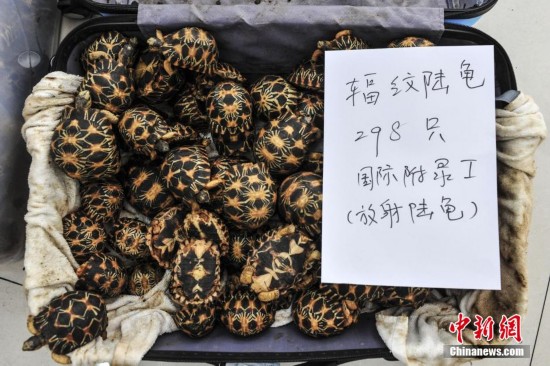 辐纹陆龟
298只
国际附录I
(放射陆龟)
中新网
Chinanews.com